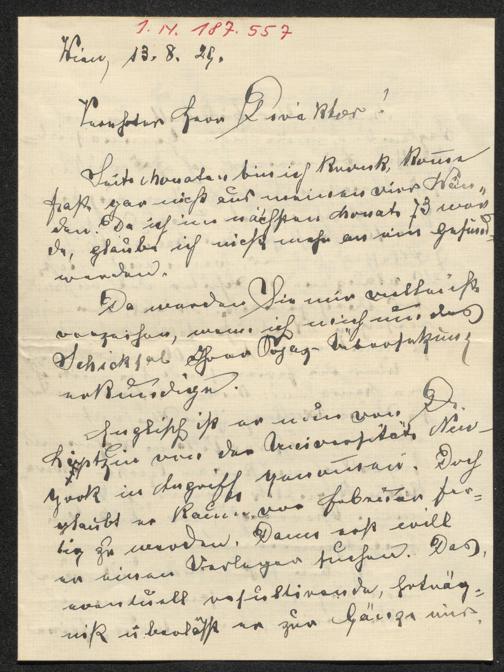 I. N. 187.557
Wien, 13. 8. 29.
Verehrter Herr Direktor!
Seit Monaten bin ich krank, komme
fast gar nicht aus meinen vier Wän-
den. Da ich im nächsten Monat 73 wer-
de, glaube ich nicht mehr an ein gesund
werden.
Da werden Sie mir vielleicht
verzeihen, wenn ich mich um das
Schicksal Ihrer Übersetzung
erkundige.
Englisch ist er nun von Dr.
von der Universität New-
york in Angriff genommen. Doch
glaubt er kaum vor Februar fer-
tig zu werden. Dann erst will
er einen Verleger suchen. Das,
eventuell resultirende, Erträg-
niß überläßt er zur Gänze mir.